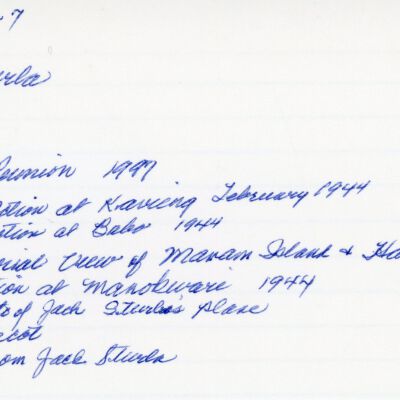 -7
urla
Reunion 1997
Action at Kavieng February 1944
tion at Babo 1944
erial View of Manam Island + Ha
tion at Manokwari 1944
to of Jack Sturla's plane
cot
om Jack Sturla